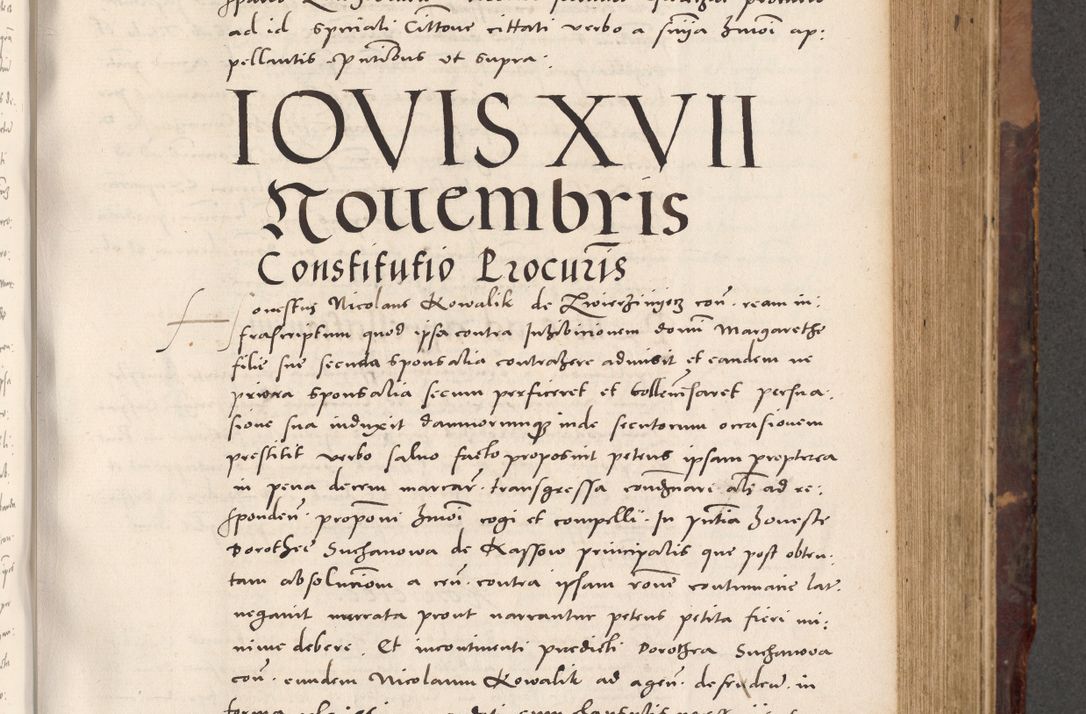 ad id spenali Cittone cittati verbo a sniia hmoi ap:
pellantis pntibus ut supra:
IOVIS XVII
Nouembris
Constitutio Procuris
Honestus Nicolaus Kowalik de Zwierzinyecz con. ream in:
frascriptum quod ipsa contra Inhibicionem domi Margarethe
filie sue secunda sponsalia contrahere admisit et eandem ne
priora sponsalia secum perficeret et sollemsaret persua.
sione sua induxit damnorumq inde secutorum occasionem
prestitit verbo saluo facto proposuit petens ipsam propterea
in pena decem marcar. transgressa condnare alz ad re:
sponden. proponi hmoi cogi et compelli. In pntia honeste
Dorothee Suchanowa de Kassow principalis que post obten.
tam absolucionem a cen. contra ipsam rone contumacie lat.
negauit narrata prout narrantur petens petita fieri mi:
nime debere. Et incontinenti predicti Dorothea Suchanowa
con. eundem Nicolaum Kowalik ad agen. defenden. in